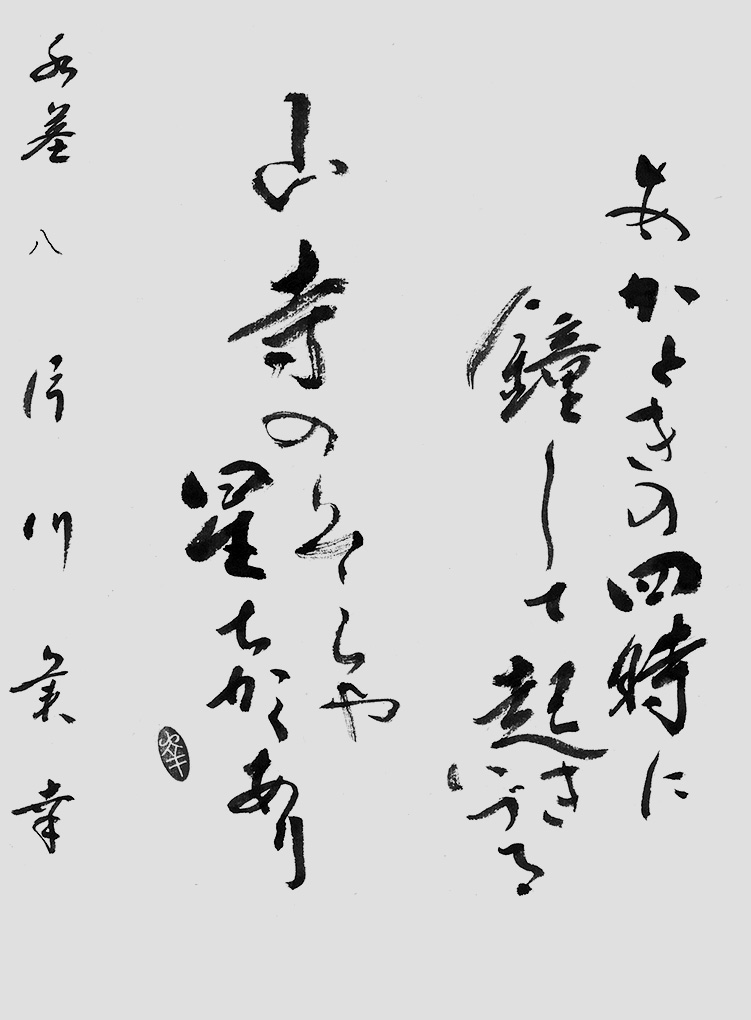 あかときの四時に
鐘して起き
いづる
山寺のそらや
星ちかくあり
八 川 幸